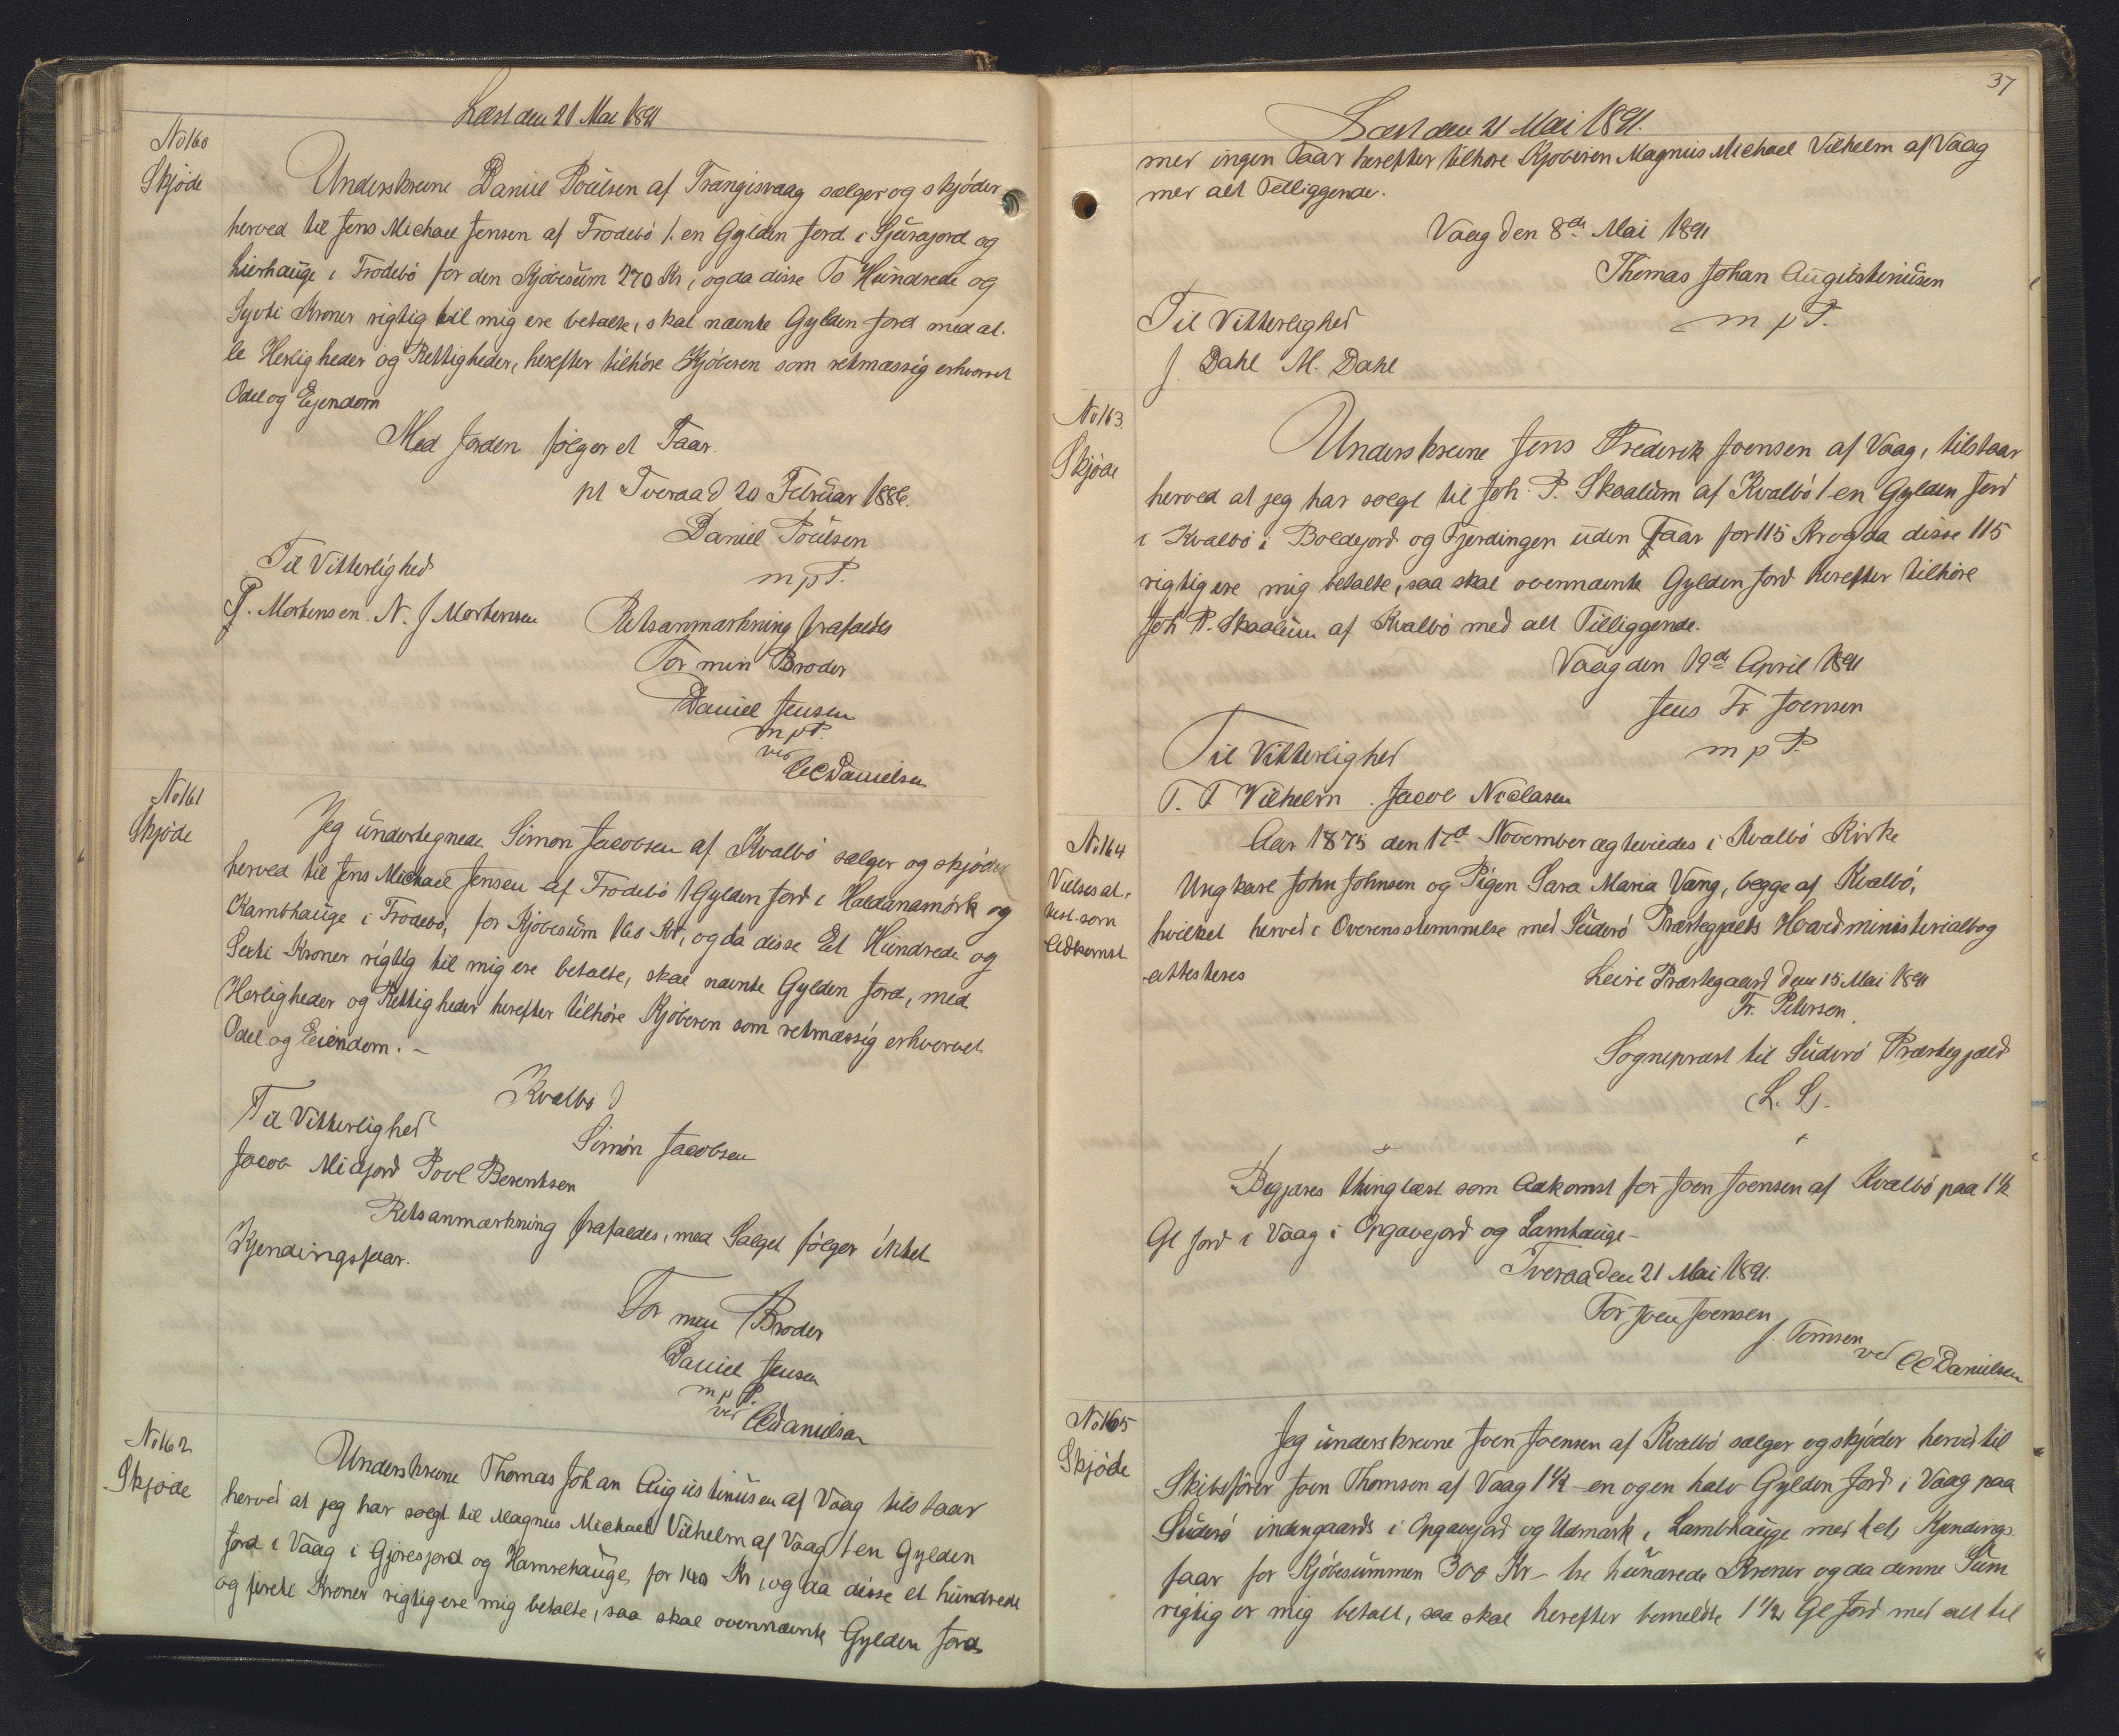 Læst den 21 Mai 1891
No 160
Skjøde
Underskrevne Daniel Poulsen af Trangisvaag sælger og skjøder
herved til Jens Michael Jensen af Frodebø 1. en Gylden Jord i Sjúrajord og
Lierhauge i Frodebø for den Kjøbesum 270 Kr, og da disse To Hundrede og
Syvti Kroner rigtig til mig ere betalte, skal nævnte Gylden Jord med al-
le Herligheder og Rettigheder, herefter tilhøre Kjøberen som retmæssig erhvervet
Odel og Ejendom
Med Jorden følger et Faar.
pt Tveraa d 20 Februar 1886.
Daniel Poulsen
m p P.
Til Vitterlighed
P. Mortensen. N. J Mortensen
Retsanmærkning frafaldes
For min Broder
Daniel Jensen
m p P.
ved
CC Danielsen
No 161
Skjøde
Jeg undertegnede Simon Jacobsen af Kvalbø sælger og skjøder
herved til Jens Michael Jensen af Frodebø 1 Gylden Jord i Haldanamørk og
Kambhauge i Frodebø, for Kjøbesum 160 Kr, og da disse Et Hundrede og
Sexti Kroner rigtig til mig ere betalte, skal nævnte Gylden Jord, med
Herligheder og Rettigheder herefter tilhøre Kjøberen som retmæssig erhvervet
Odel og Eiendom. -
Kvalbø d
Til Vitterlighed
Simon Jacobsen
Jacob Midjord Povl Berentsen
Retsanmærkning frafaldes, med Salget følger ikket
Kjendingsfaar.
For min Broder
Daniel Jensen
m p P.
ved CC Danielsen
No 162
Skjøde
Underskrevne Thomas Johan Augustinusen af Vaag tilstaar
herved at jeg har solgt til Magnus Michael Vilhelm af Vaag 1 en Gylden
Jord i Vaag i Gjøresjord og Hamrehauge for 140 Kr, og da disse et hundrede
og førete Kroner rigtig ere mig betalte, saa skal ovennævnte Gylden Jord
37
Læst den 21 Mai 1891.
med ingen Faar herefter tilhøre Kjøberen Magnus Michael Vilhelm af Vaag
med alt Tilliggende.
Vaag den 8de Mai 1891
Thomas Johan Augustinusen
m p P.
Til Vitterlighed
J. Dahl M. Dahl
No 163.
Skjøde
Underskrevne Jens Frederik Joensen af Vaag, tilstaar
herved at jeg har solgt til Joh. P. Skaalum af Kvalbø 1- en Gylden Jord
i Kvalbø i Boldejord og Fjerdingen uden Faar for 115 Kr og da disse 115
rigtig ere mig betalte, saa skal ovennævnte Gylden Jord herefter tilhøre
Joh P. Skaalum af Kvalbø med alt Tilliggende.
Vaag den 19de April 1891
Jens Fr. Joensen
m p P.
Til Vitterlighed
T. T Vilhelm. Jacob Niclasen
No 164
Vielsesat-
test som
Adkomst
Aar 1875 den 17de November ægteviedes i Kvalbø Kirke
Ungkarl John Johnsen og Pigen Sara Maria Vang, begge af Kvalbø,
hvilket herved i Overensstemmelse med Suderø Præstegjælds Hovedministerialbog
attesteres
Leire Præstegaard den 15 Mai 1891
Fr. Petersen.
Sognepræst til Suderø Præstegjæld
(L. S).
Begjæres thinglæst som Adkomst for Joen Joensen af Kvalbø paa 1½
Gl Jord i Vaag i Opgavejord og Lamhauge -
Tveraa den 21 Mai 1891.
For Joen Joensen
J. Tomsen
ved CC Danielsen
No 165
Skjøde
Jeg underskrevne Joen Joensen af Kvalbø sælger og skjøder herved til
Skibsfører Joen Thomsen af Vaag 1½ - en og en halv Gylden Jord i Vaag paa
Suderø indengaards i Opgavejord og Udmark i Lambhauge med 1 et, Kjendings
faar for Kjøbesummen 300 Kr - tre hundrede Kroner og da denne Sum
rigtig er mig betalt, saa skal herefter bemeldte 1½ Gl Jord med alt til